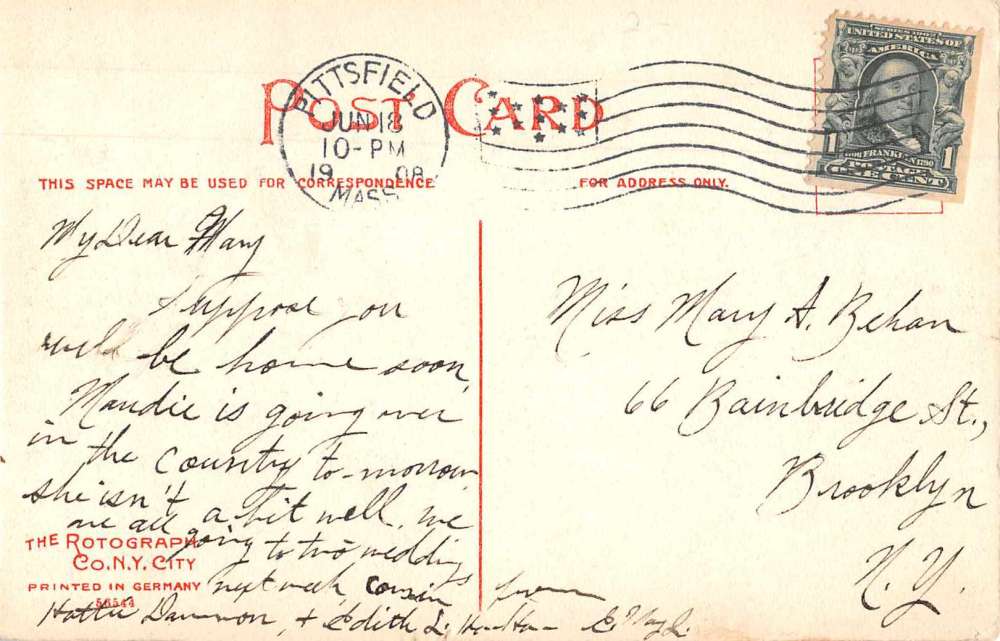 POST CARD
PITTSFIELD
JUN 18
10-PM
1908
MASS.
SERIES 1902
UNITED STATES OF
AMERICA
1706 FRANKLIN 1790
POSTAGE
1 ONE CENT 1
THIS SPACE MAY BE USED FOR CORRESPONDENCE
FOR ADDRESS ONLY.
My Dear Mary
Suppose you
will be home soon,
Maudie is going over
in the country to-morrow
she isn't a bit well. we
are all going to two weddings
next week, Cousin
Hattie & Edith
Miss Mary A. Behan
66 Bainbridge St.,
Brooklyn
N.Y.
THE ROTOGRAPH
CO. N.Y. CITY
PRINTED IN GERMANY